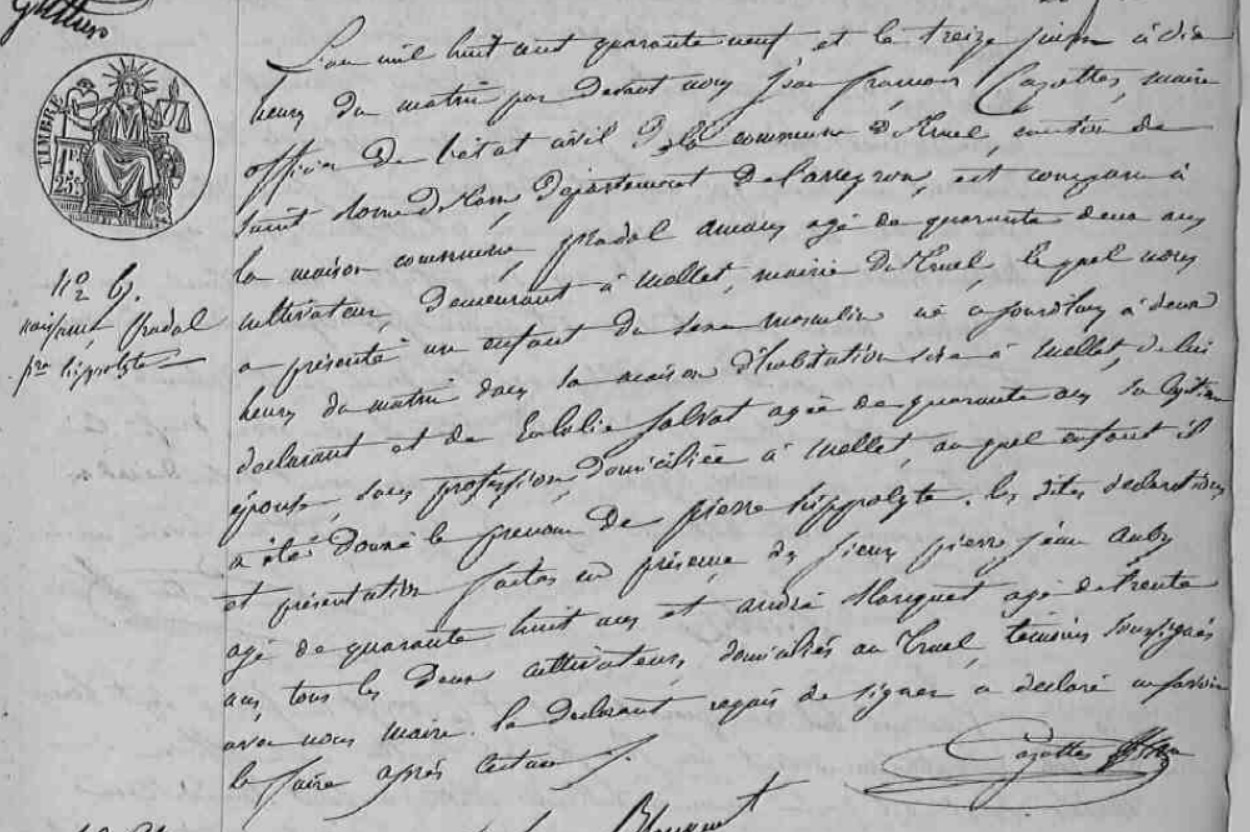 L'an mil huit cent quarante neuf et le treize juin à dix
heures du matin par devant nous Jean françois Cazottes, maire
officier de l'état civil de la commune du Truel, canton de
Saint Rome de Tarn, département de l'aveyron, est comparu à
la maison commune, pradal amans agé de quarante deux ans
cultivateur, demeurant à mellet, mairie du Truel, le quel nous
a présenté un enfant du sexe masculin né aujourd'huy à deux
heures du matin dans sa maison d'habitation sise à mellet, de lui
declarant et de Eulalie Salvat agée de quarante ans sa légitime
épouse, sans profession, domiciliée à mellet, au quel enfant il
a été donné le prenom de pierre hippolyte. les dites declarations
et présentation faites en présence des sieurs pierre jean
agé de quarante huit ans et andré agé de trente
ans, tous les deux cultivateurs, domiciliés au Truel, témoins soussignés
avec nous maire. le declarant requis de signer a declaré ne savoir
le faire après lecture
TIMBRE
1F.
25c
N° 6.
naissance pradal
pre hippolyte
Cazottes